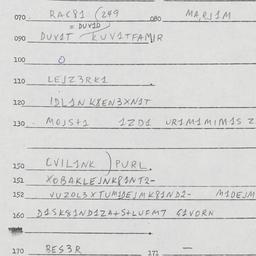 070. RAC81 (249 080 MARJ1M
= DUV1D
090 DUV1T KUV1TFAMJR
100 O
110 LEJZ3RK1
120 IDL1N K8EN3XN1T
130 MOJS+1 1ZD1 UR1M1M1M1S Z
150 CVIL1NK ) PURL.
151 XOBAKLEJNK81NT2-
152 VUZOL3XTUM1DEJMK81ND2- M1DEJM
160 D1SK81ND1ZA+S+LUFM7 G1VORN
170 BES3R 171 —